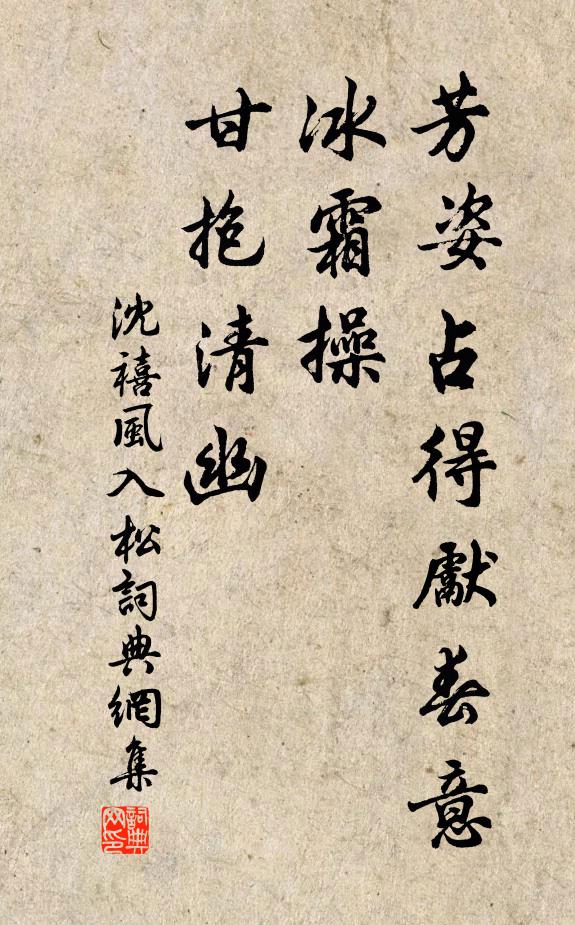 芳姿占得獻春意
冰霜操
甘抱清幽
沈禧風入松詞典網集
詞典网印